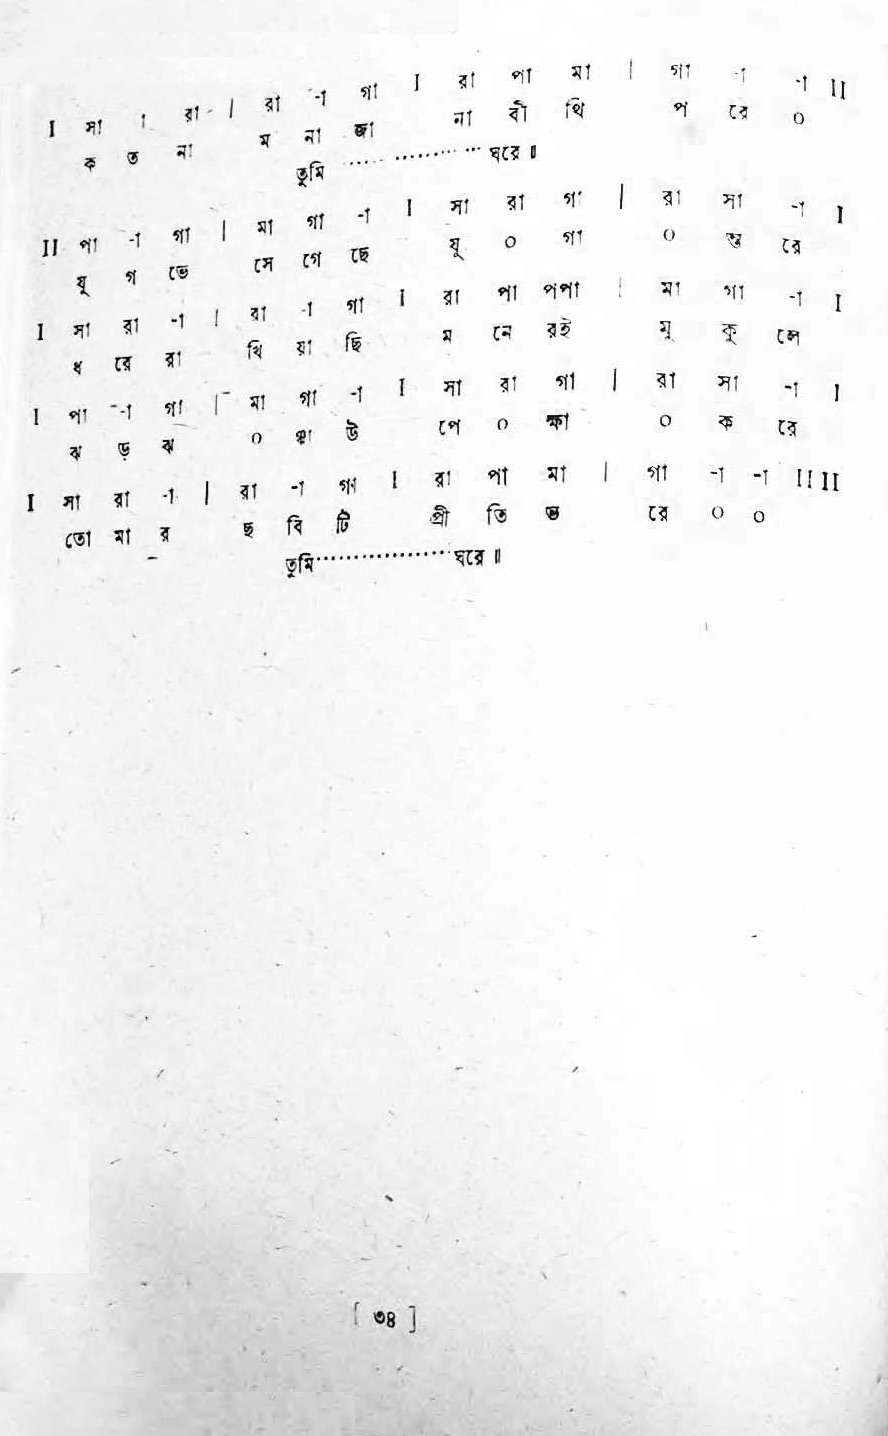 I সা । রা | রা -া গা I রা পা মা | গা -া -া II
ক ত না ম না জা না বী থি প রে ০
তুমি ·············· ঘরে ॥
II পা -া গা | মা গা -া I সা রা গা | রা সা -া I
যু গ ভে সে গে ছে যু ০ গা ০ ন্ত রে
I সা রা -া | রা -া গা I রা পা পপা | মা গা -া I
ধ রে রা খি য়া ছি ম নে রই মু কু লে
I পা -া গা | মা গা -া I সা রা গা | রা সা -া I
ঝ ড় ঝ ০ ঞ্ঝা উ পে ০ ক্ষা ০ ক রে
I সা রা -া | রা -া গা I রা পা মা | গা -া -া II II
তো মা র ছ বি টি প্রী তি ভ রে ০ ০
তুমি ·················· ঘরে ॥
[ ৩৪ ]